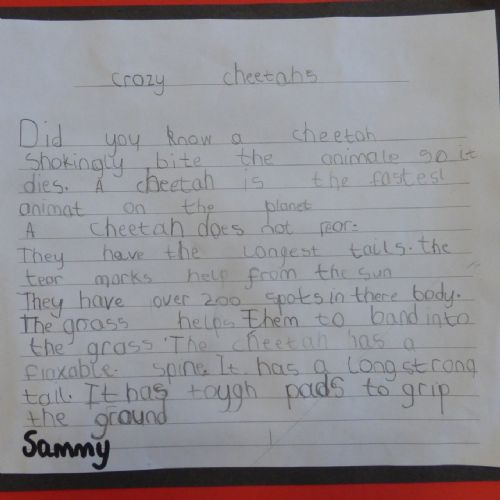 crazy cheetahs
Did you know a cheetah
Shokingly bite the animale so it
dies. A cheetah is the fastest
animat on the planet
A cheetah does not roar.
They have the longest tails. the
tear marks help from the sun
They have over 200 spots in there body.
The grass helps them to band into
the grass. The cheetah has a
flaxable. spine. It has a long strong
tail. It has tough pads to grip
the ground
Sammy